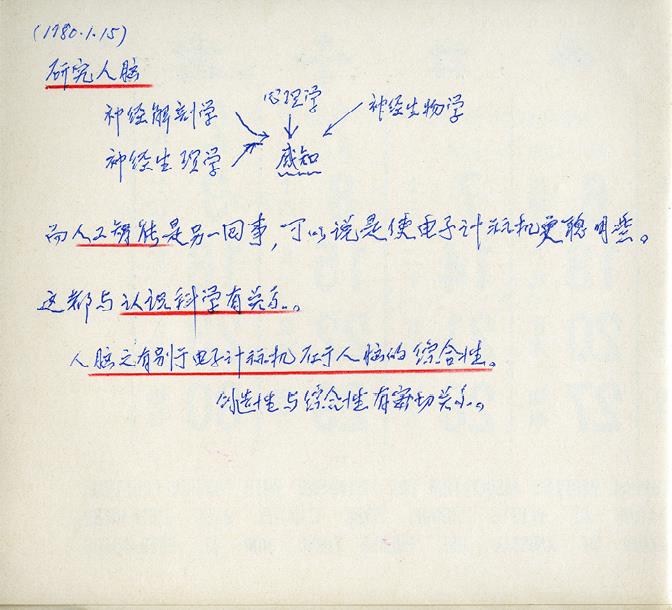 (1980.1.15)
研究人脑
心理学
神经解剖学
神经生物学
神经生理学
感知
而人工智能是另一回事，可以说是使电子计标机更聪明些。
这都与认识科学有关系。
人脑之有别于电子计标机在于人脑的综合性。
创造性与综合性有密切关系。